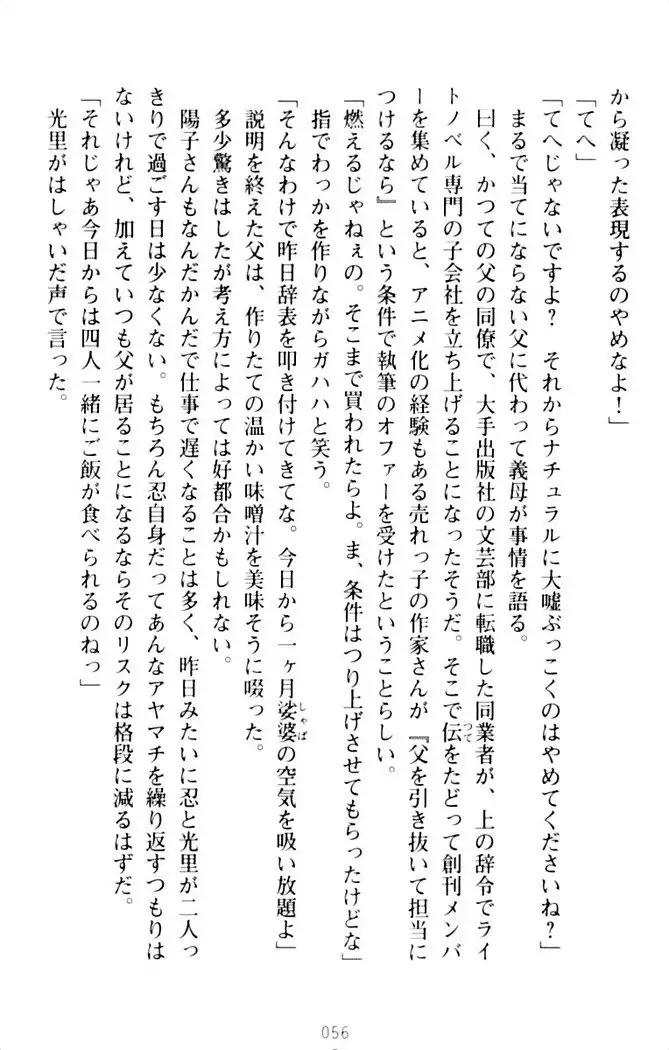 から凝った表現するのやめなよ！」
「てへ」
「てへじゃないですよ？　それからナチュラルに大嘘ぶっこくのはやめてくださいね？」
まるで当てにならない父に代わって義母が事情を語る。
曰く、かつての父の同僚で、大手出版社の文芸部に転職した同業者が、上の辞令でライ
トノベル専門の子会社を立ち上げることになったそうだ。そこで伝をたどって創刊メンバ
ーを集めていると、アニメ化の経験もある売れっ子の作家さんが『父を引き抜いて担当に
つけるなら』という条件で執筆のオファーを受けたということらしい。
「燃えるじゃねぇの。そこまで買われたらよ。ま、条件はつり上げさせてもらったけどな」
指でわっかを作りながらガハハと笑う。
「そんなわけで昨日辞表を叩き付けてきてな。今日から一ヶ月娑婆の空気を吸い放題よ」
説明を終えた父は、作りたての温かい味噌汁を美味そうに啜った。
多少驚きはしたが考え方によっては好都合かもしれない。
陽子さんもなんだかんだで仕事で遅くなることは多く、昨日みたいに忍と光里が二人っ
きりで過ごす日は少なくない。もちろん忍自身だってあんなアヤマチを繰り返すつもりは
ないけれど、加えていつも父が居ることになるならそのリスクは格段に減るはずだ。
「それじゃあ今日からは四人一緒にご飯が食べられるのねっ」
光里がはしゃいだ声で言った。
つて
しゃば
056